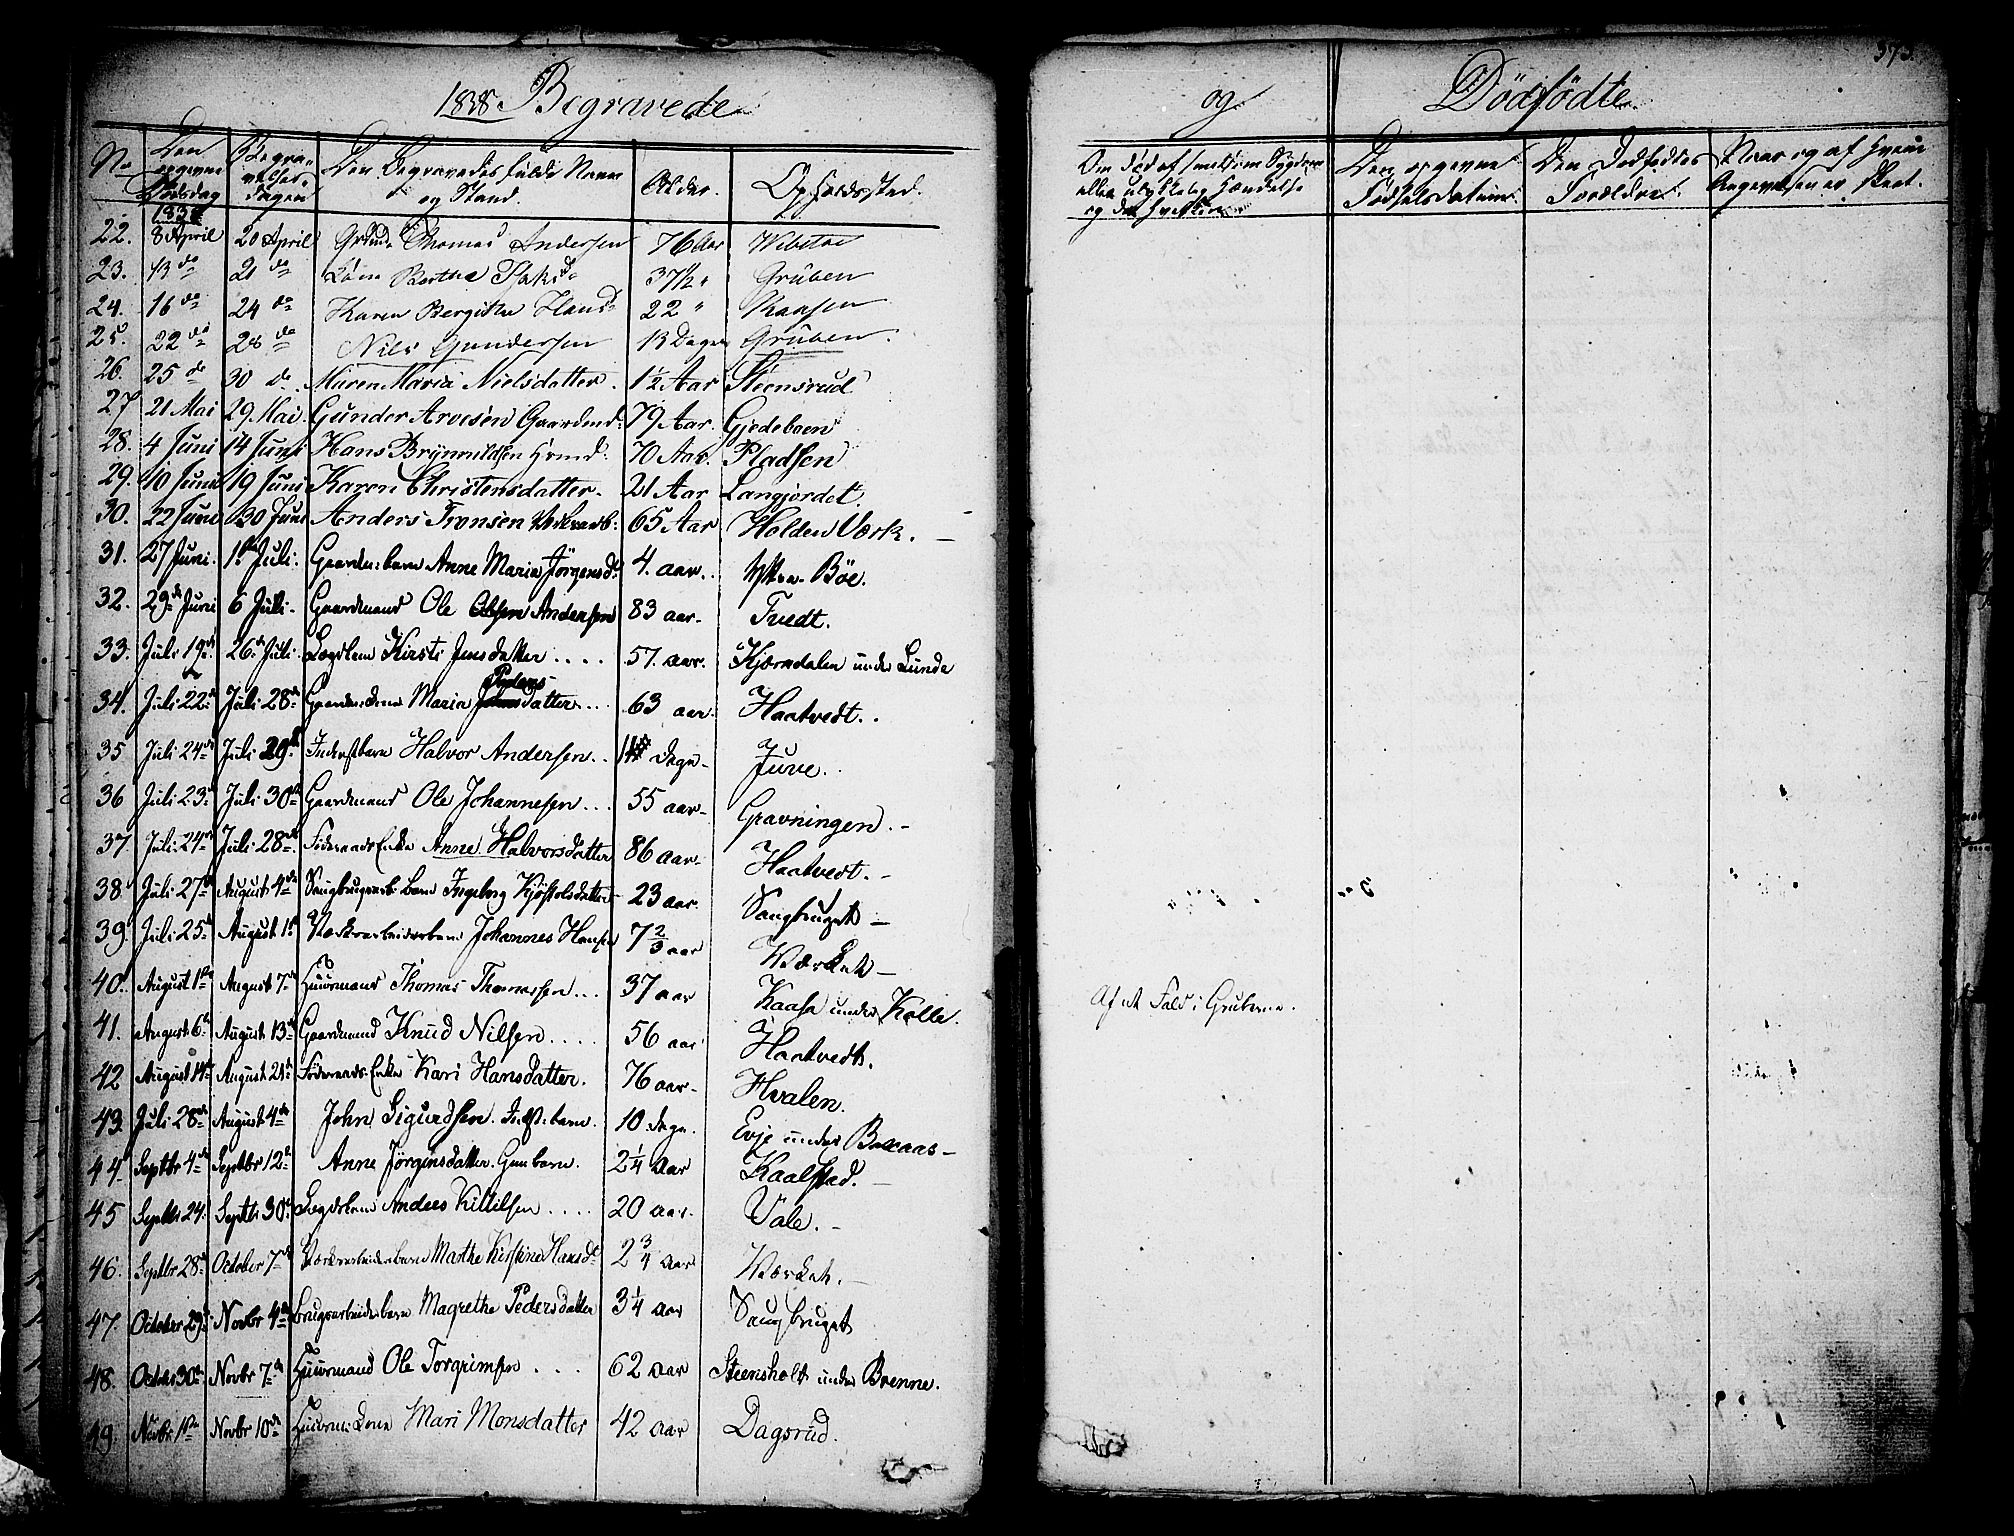 1838 Begravede
No
Den opgivne Dødsdag
Begravelses-dagen
Den Begravedes fulde Navn og Stand.
Alder.
Opholdssted.
1838
22. 8 April 20 April Thomas Andersen 76 Aar
23. 13 do 21 do Berthe 37 1/2 " Gruben
24. 16 do 24 do Karen Bergithe Hansd. 22 " Kaasen
25. 22 do 28 do Nils Gundersen 13 Dage Gruben.
26. 25 do 30 do. Maren Maria Nielsdatter. 1 1/2 Aar Steensrud
27 21 Mai 29. Mai. Gunder Arvesen Gaardmd: 79 Aar. Gjedeboen
28. 4 Juni 14 Juni Hans Brynnildsen Huusmd. 70 Aar. Pladsen
29. 10 Juni 19 Juni Karen Christensdatter. 21 Aar Langjordet.
30. 22 Juni 30 Juni Anders Tronsen Værksarb: 65 Aar Holden Værk. —
31. 27 Juni. 1ste Juli. Gaardm: barn Anne Maria Jörgensd: 4. aar. Ystre Böe.
32. 29de Juni 6 Juli. Gaardmand Ole Andersen 83 aar. Tvedt.
33. Juli 19de 26de Juli. Lægdslem Kirsti Jensdatter .... 57. aar. Kjærndalen under Lunde
34. Juli 22de Juli 28de Gaardm: Kone Maria Peders datter ... 63 aar. Haatvedt..
35 Juli 24de Juli 29de Inderstbarn Halvor Andersen.. 14 dage Juve..
36 Juli 23de Juli 30te Gaardmand Ole Johannesen ... 55 aar Gravningen. -
37. Juli 24de Juli 28de Föderaads Enke Anne Halvorsdatter 86 aar. Haatvedt. -
38 Juli 27de August 4de Saugbrugsarb: barn Ingeborg Kjöstolsdatter 23 aar. Saugbruget —
39. Juli 25de August 1ste Værksarbeiderbarn Johannes Hansen 7 2/3 aar Værket —
40. August 1ste August 7de Huusmand Thomas Thomassen ... 37 aar Kaasa under Kolle. Af et Fald i Gruberne.
41. August 6te August 13de Gaardmand Knud Nilsen ..... 56 aar Haatvedt.
42 August 14de August 21de Föderaads Enke Kari Hansdatter. 76 aar. Hvalen.
43. Juli 28de August 4de John Sigurdsen. Indst: barn. 10 dage. Evje under Bakaas —
44. Septbr 4de Septbr 12te Anne Jörgensdatter. Gmbarn. 2 1/4 aar Kaalstad. —
45 Septbr 24. Septbr 30te Lægdsbarn Anders Kittilsen .... 20 aar. Vale. -
46. Septbr 28de October 7de Værksarbeiderbarn Marthe Kirstine Hansd: 2 3/4 aar Værket. —
47. October 29de Novbr 4de Brugsarbeiderbarn Magrethe Pedersdatter 3 1/4 aar Saugbruget
48. Octobr 30te Novbr 7de Huusmand Ole Torgrimsen .... 62 aar Steensholt under Brenne.
49. Novbr 1ste Novbr 10de Huusm: Kone Mari Monsdatter 42 aar Dagsrud.
og Dödfödte
373.
Om död af smitsom Sygdom eller ulykkelig Hændelse og da hvilken
Den opgivne Födselsdatum.
Den Dödfödtes Forældre.
Naar og af hvem Angivelsen er skeet.